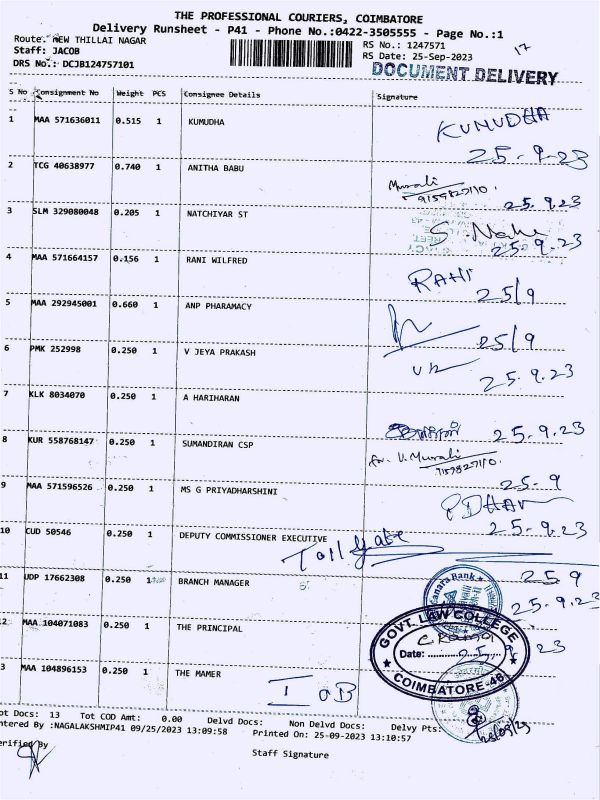 THE PROFESSIONAL COURIERS, COIMBATORE
Delivery Runsheet - P41 - Phone No.:0422-3505555 - Page No.:1
Route: NEW THILLAI NAGAR RS No.: 1247571 17
Staff: JACOB RS Date: 25-Sep-2023
DRS No.: DCJB124757101 DOCUMENT DELIVERY
S No Consignment No Weight PCS Consignee Details Signature
1 MAA 571636011 0.515 1 KUMUDHA KUMUDHA
25-9-23
2 TCG 40638977 0.740 1 ANITHA BABU Murali
9159827110. 25.9.23
3 SLM 329080048 0.205 1 NATCHIYAR ST
25.9.23
4 MAA 571664157 0.156 1 RANI WILFRED RANI
25/9
5 MAA 292945001 0.660 1 ANP PHARAMACY
25/9
6 PMK 252998 0.250 1 V JEYA PRAKASH
25.9.23
7 KLK 8034070 0.250 1 A HARIHARAN
25.9.23
8 KUR 558768147 0.250 1 SUMANDIRAN CSP for. V. Murali
9159827110.
25-9
9 MAA 571596526 0.250 1 MS G PRIYADHARSHINI
25-9.23
10 CUD 50546 0.250 1 DEPUTY COMMISSIONER EXECUTIVE
Toll gate
25 9
11 UDP 17662308 0.250 1 BRANCH MANAGER Canara Bank
25.9.23
12 MAA 104071083 0.250 1 THE PRINCIPAL GOVT. LAW COLLEGE
Date: 25.9.23
COIMBATORE-46
13 MAA 104896153 0.250 1 THE MAMER
I OB
Tot Docs: 13 Tot COD Amt: 0.00 Delvd Docs: Non Delvd Docs: Delvy Pts:
Entered By :NAGALAKSHMIP41 09/25/2023 13:09:58 Printed On: 25-09-2023 13:10:57
Verified By Staff Signature